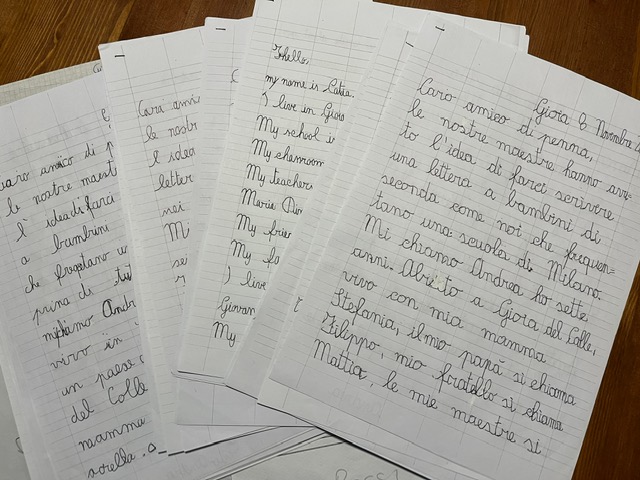 uaro amico di p
le nostre maest
l'idea di farci
a bambini
che fregetano u
prina di
mi chiamo Andr
vivo in
un paese
del Colle
mamma
sorella.
Cara amic
le nostr
l'idea
letter
nei
Mi
se
Hello,
my name is
I live in Gioia
My school is
My
My teachers
Maria
My frien
My
I live
Giovan
My
Gioia 6 Novembre
Caro amico di penna,
le nostre maestre hanno avu-
to l'idea di farci scrivere
una lettera a bambini di
seconda come noi che frequen-
tano una scuola di Milano.
Mi chiamo Andrea ho sette
anni. Abito a Gioia del Colle,
vivo con mia mamma
Stefania, il mio papà si chiama
Filippo, mio fratello si chiama
Mattia, le mie maestre si